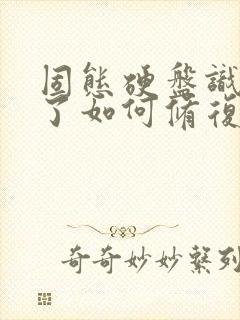 固態硬盤識
了如何脩復
奇奇妙妙系列